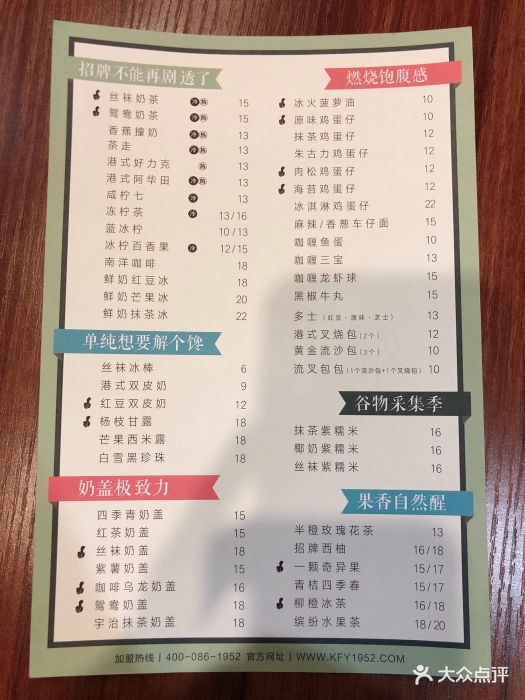 招牌不能再剧透了
丝袜奶茶 冷 热 15
鸳鸯奶茶 冷 热 15
香蕉撞奶 冷 热 13
茶走 冷 热 13
港式好力克 热 13
港式阿华田 冷 热 13
咸柠七 冷 13
冻柠茶 冷 13/16
蓝冰柠 10/13
冰柠百香果 冷 12/15
南洋咖啡 18
鲜奶红豆冰 18
鲜奶芒果冰 20
鲜奶抹茶冰 22
单纯想要解个馋
丝袜冰棒 6
港式双皮奶 9
红豆双皮奶 12
杨枝甘露 18
芒果西米露 18
白雪黑珍珠 18
奶盖极致力
四季青奶盖 15
红茶奶盖 15
丝袜奶盖 18
紫薯奶盖 15
咖啡乌龙奶盖 16
鸳鸯奶盖 18
宇治抹茶奶盖 18
燃烧饱腹感
冰火菠萝油 10
原味鸡蛋仔 10
抹茶鸡蛋仔 12
朱古力鸡蛋仔 12
肉松鸡蛋仔 12
海苔鸡蛋仔 12
冰淇淋鸡蛋仔 22
麻辣/香葱车仔面 15
咖喱鱼蛋 12
咖喱三宝 13
咖喱龙虾球 15
黑椒牛丸 15
多士(红豆·原味·芝士) 13
港式叉烧包(2个) 12
黄金流沙包(3个) 10
流叉包包(1个流沙包+1个叉烧包) 10
谷物采集季
抹茶紫糯米 16
椰奶紫糯米 16
丝袜紫糯米 16
果香自然醒
半橙玫瑰花茶 13
招牌西柚 16/18
一颗奇异果 15/17
青桔四季春 15/17
柳橙冰茶 16/18
缤纷水果茶 18/20
加盟热线|400-086-1952 官方网址|WWW.KFY1952.COM
大众点评